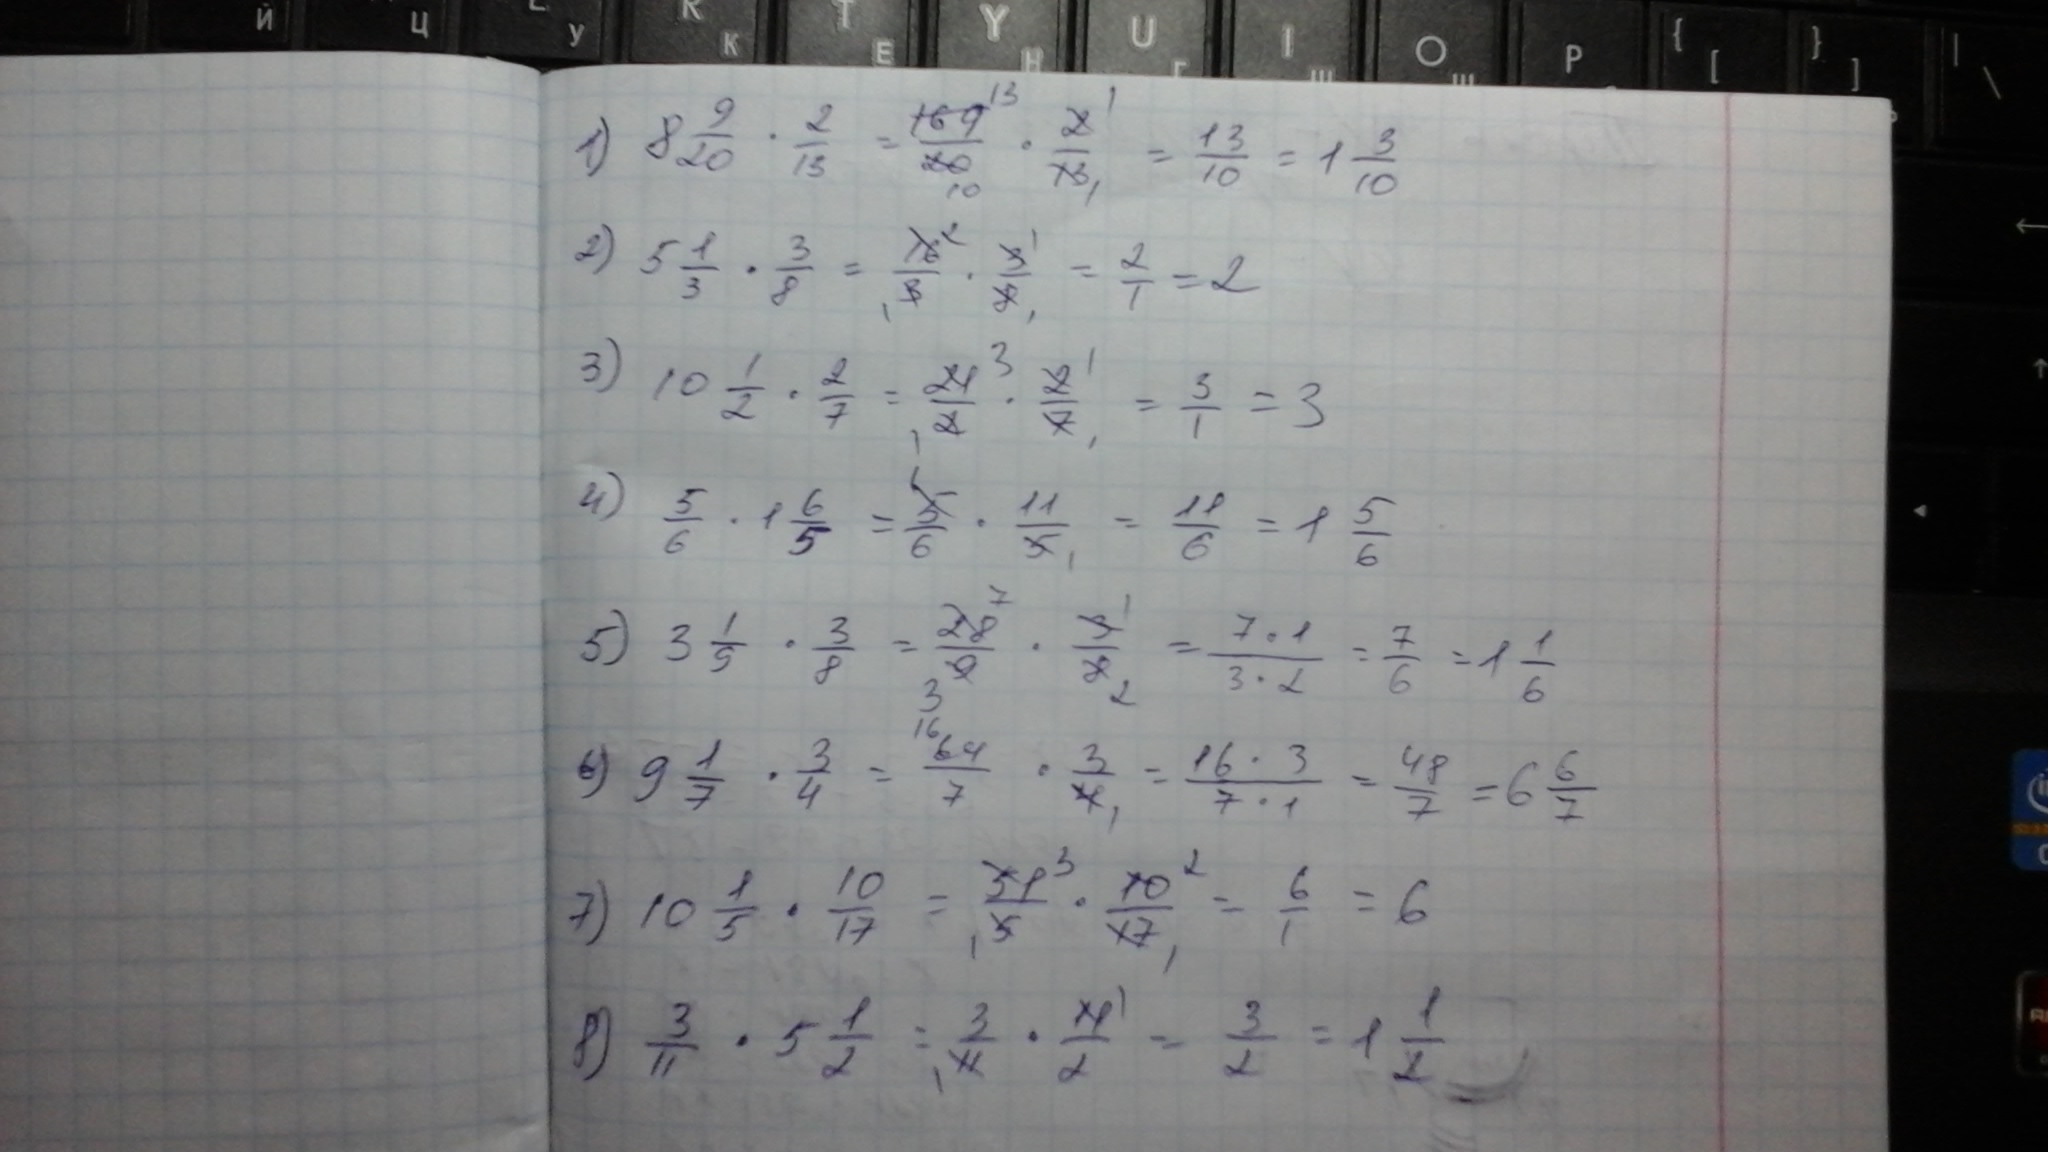 Й Ц У R К T Е Y Н U Г I Ш O Щ P { [ } ] | \
1) 8 9/20 · 2/13 = 169/20 13 10 · 2/13 1 1 = 13/10 = 1 3/10
2) 5 1/3 · 3/8 = 16/3 2 1 · 3/8 1 1 = 2/1 = 2
3) 10 1/2 · 2/7 = 21/2 3 1 · 2/7 1 1 = 3/1 = 3
4) 5/6 · 1 6/5 = 5/6 1 · 11/5 1 = 11/6 = 1 5/6
5) 3 1/9 · 3/8 = 28/9 7 3 · 3/8 1 2 = 7·1/3·2 = 7/6 = 1 1/6
6) 9 1/7 · 3/4 = 16 64/7 · 3/4 1 = 16·3/7·1 = 48/7 = 6 6/7
7) 10 1/5 · 10/17 = 51/5 3 1 · 10/17 2 1 = 6/1 = 6
8) 3/11 · 5 1/2 = 3/11 1 · 11/2 1 = 3/2 = 1 1/2